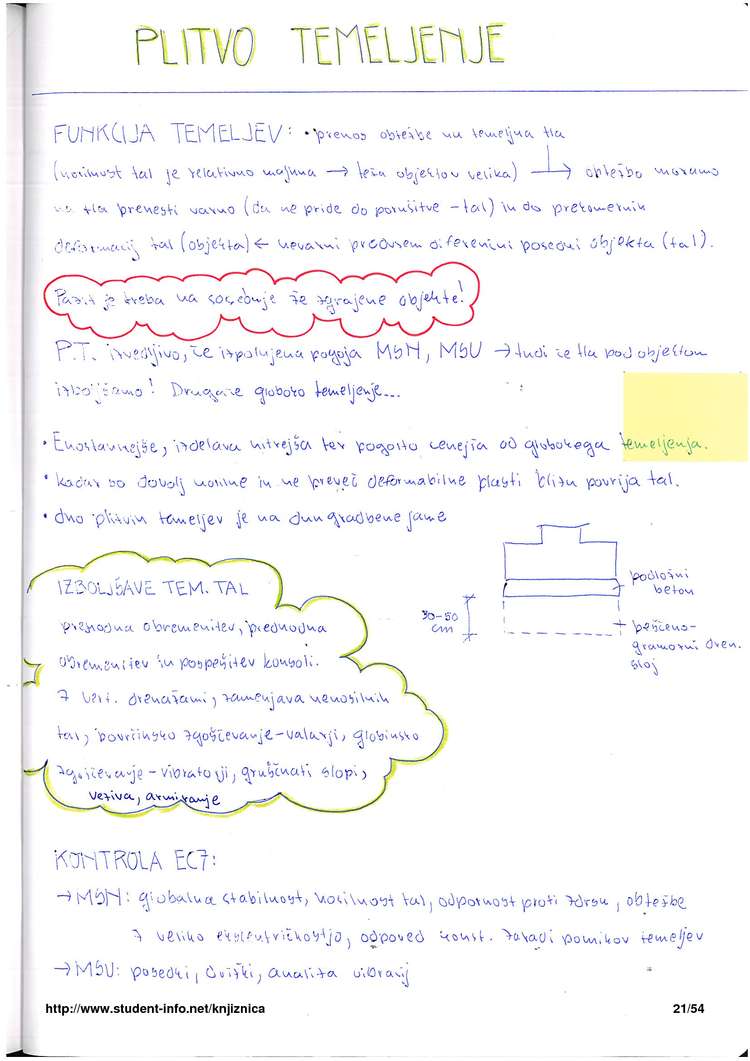 PLITVO TEMELJENJE
FUNKCIJA TEMELJEV: • prenos obtežbe na temeljna tla
(nosilnost tal je relativno majhna → teža objektov velika) → obtežbo moramo
na tla prenesti varno (da ne pride do porušitve - tal) in do prekomernih
deformacij tal (objekta) ← nevarni predvsem diferenčni posedki objekta (tal).
Pazit je treba na sosednje že zgrajene objekte!
P.T. izvedljivo, če izpolnjena pogoja MSN, MSU → tudi če tla pod objektom
izboljšamo! Drugače globoko temeljenje...
• Enostavnejše, izdelava hitrejša ter pogosto cenejša od globokega temeljenja.
• kadar so dovolj nosilne in ne preveč deformabilne plasti blizu površja tal.
• dno plitvih temeljev je na dnu gradbene jame
podložni
beton
30-50
cm
peščeno-
gramozni dren.
sloj
IZBOLJŠAVE TEM. TAL
predhodna obremenitev, predhodna
obremenitev in pospešitev konsoli.
z vert. drenažami, zamenjava nenosilnih
tal, površinsko zgoščevanje - valarji, globinsko
zgoščevanje - vibratorji, gruščnati slopi,
veziva, armiranje
KONTROLA EC7:
→ MSN: globalna stabilnost, nosilnost tal, odpornost proti zdrsu, obtežbe
z veliko ekscentričnostjo, odpoved konst. zaradi pomikov temeljev
→ MSU: posedki, dvižki, analiza vibracij
http://www.student-info.net/knjiznica
21/54